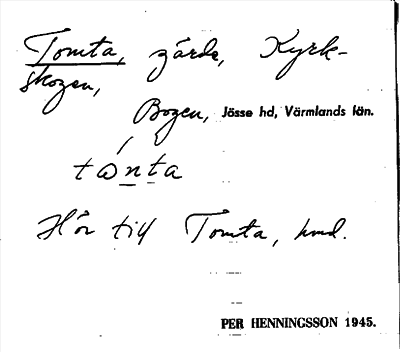 Tomta, gärde, Kyrk-
skogen,
Bogen, Jösse hd, Värmlands län.
tònta
Hör till Tomta, hmd.
PER HENNINGSSON 1945.